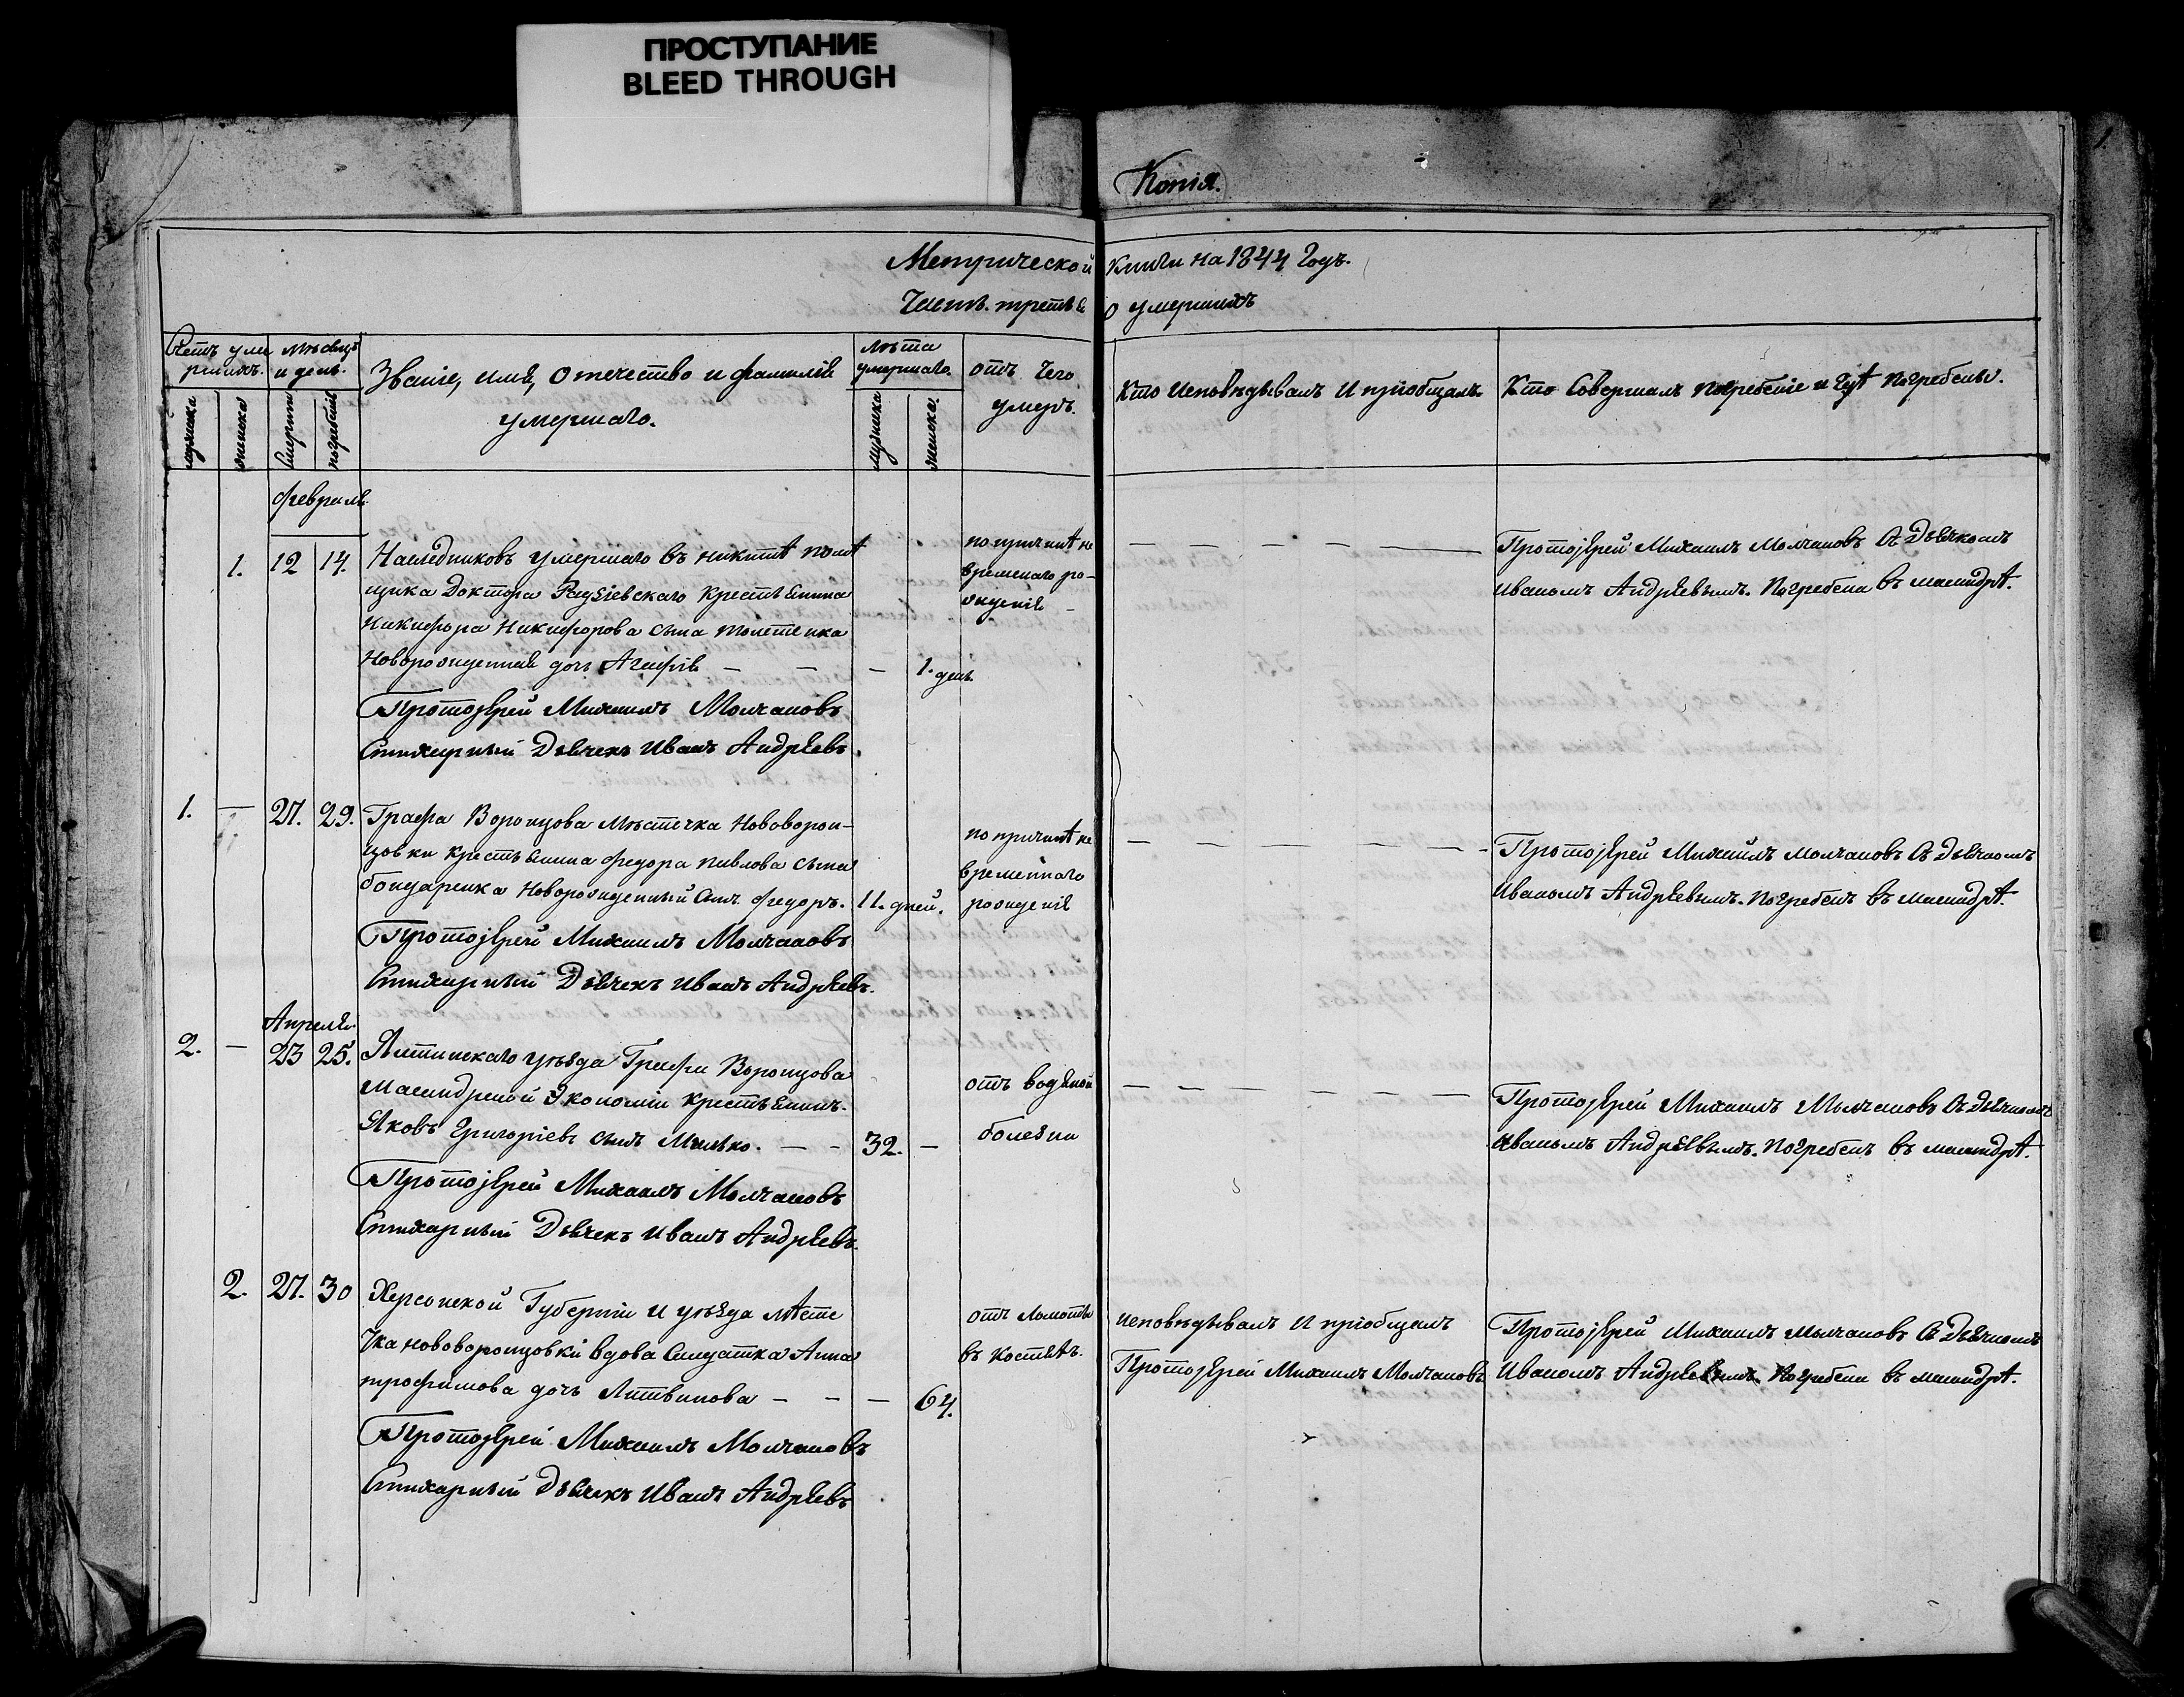 ПРОСТУПАНИЕ
BLEED THROUGH
Копія.
Метрической книги на 1844 Годъ.
Часть третья о умершихъ
Счетъ умершихъ. Мѣсяцъ и день. Званіе, имя, отечество и фамилія умершаго. лѣта умершаго. отъ чего умеръ. Кто исповѣдывалъ и пріобщалъ. Кто Совершалъ погребеніе и гдѣ погребены.
мужеска женска смерти погребенія мужеска женска.
февраля
1. 12 14. Наследниковъ умершаго въ никитѣ помѣ
щика Доктора крестьянина
Никифора Никифорова сына
Новорожденная дочь Агафія — — — 1. день
по причинѣ не
временаго ро-
жденія —
— — — — —
Протоіерей Михаилъ Молчановъ съ Дьячкомъ
Иваномъ Андреевымъ. Погребена въ масандрѣ.
Протоіерей Михаилъ Молчановъ
Стихарный Дьячекъ Иванъ Андреевъ.
1. — 27. 29. Графа Воронцова мѣстечка Нововорон-
цовки крестьянина федора павлова сына
бондаренка новорожденный сынъ федоръ. 11. дней.
по причинѣ не
времянаго
рожденія
— — — — — — -
Протоіерей Михаилъ Молчановъ съ дьячкомъ
Иваномъ Андреевымъ. погребенъ въ масандрѣ.
Протоіерей Михаилъ Молчановъ
Стихарный Дьячекъ Иванъ Андреевъ.
Апреля
2. — 23 25. Ялтинскаго уѣзда Графа Воронцова
Масандрской Экономіи крестьянинъ
Яковъ Григоріевъ сынъ — — 32. —
отъ водяной
болезни
— — — — — —
Протоіерей Михаилъ Молчановъ съ дьячкомъ
Иваномъ Андреевымъ. погребенъ въ масандрѣ.
Протоіерей Михаилъ Молчановъ
Стихарный Дьячекъ Иванъ Андреевъ.
2. 27. 30 Херсонской Губерніи и уѣзда мѣсте
чка нововоронцовки вдова Салдатка Анна
трофимова дочь Литвинова — — — 64.
отъ ломоты
въ костяхъ.
исповѣдывалъ и пріобщалъ
Протоіерей Михаилъ Молчановъ
Протоіерей Михаилъ Молчановъ съ Дьячкомъ
Иваномъ Андреевымъ. Погребена въ масандрѣ.
Протоіерей Михаилъ Молчановъ
Стихарный Дьячекъ Иванъ Андреевъ